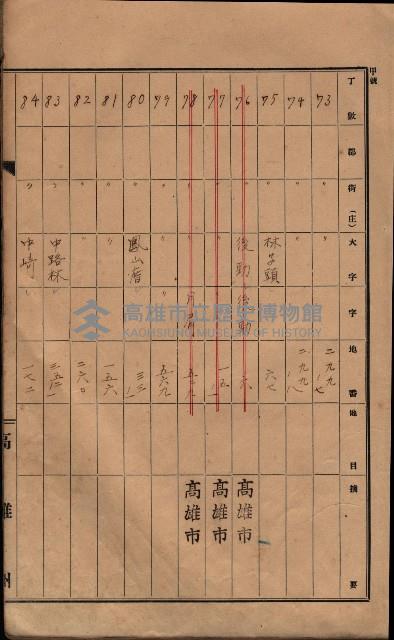 甲號
丁數 郡 街(庄) 大字 字 地番 地目 摘要
73 〃 〃 二九九ノ七
74 〃 〃 二九九ノ八
75 〃 林子頭 六七
76 〃 後勁 後勁 六 高雄市
77 〃 〃 一五 高雄市
78 〃 〃 五三九 高雄市
79 〃 〃 五六九
80 〃 鳳山厝 三三
81 〃 〃 一五六
82 〃 〃 二六〇
83 〃 中路林 三五二
84 〃 中崎 一七二
高雄州
高雄市立歷史博物館
KAOHSIUNG MUSEUM OF HISTORY